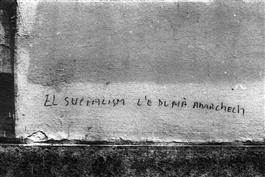 EL SUCIALISM L'È DUMÀ ANARCHECH